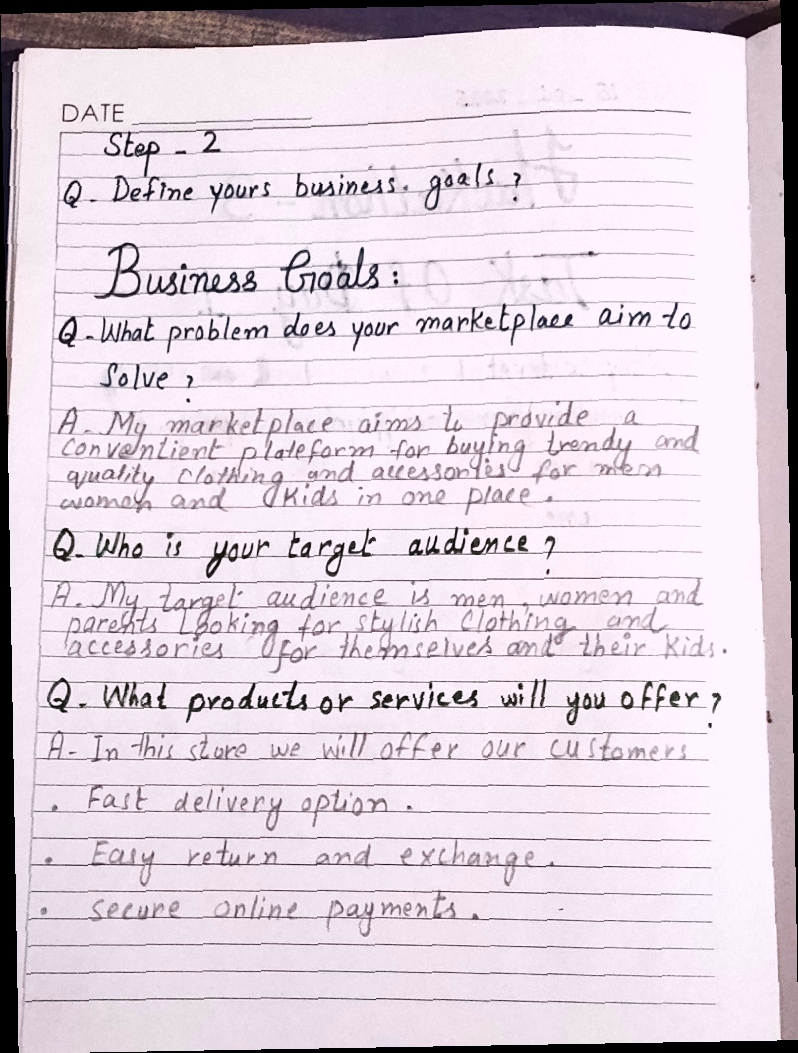 DATE
Step - 2
Q. Define yours business. goals.?
Business Goals:
Q - What problem does your marketplace aim to
Solve?
A. My marketplace aims to provide a
conventient plateform for buying trendy and
quality clothing and accessories for men
women and Kids in one place.
Q. Who is your target audience?
A. My target audience is men, women and
parents Looking for stylish Clothing and
accessories for themselves and their Kids.
Q. What products or services will you offer?
A- In this store we will offer our customers
. Fast delivery option.
. Easy return and exchange.
. Secure online payments.